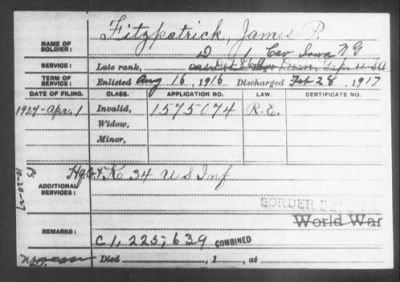 Fitzpatrick, James P.
NAME OF SOLDIER:
D 1 Cav Iowa N G
SERVICE: Late rank,
TERM OF SERVICE: Enlisted Aug 16, 1916 Discharged Feb 28, 1917
DATE OF FILING. CLASS. APPLICATION NO. LAW. CERTIFICATE NO.
1927-Apr. 1 Invalid, 1575074 R.E.
Widow,
Minor,
ADDITIONAL SERVICES: K 34 U S Inf
BORDER
World War
REMARKS: C 1,225,639 COMBINED
Died , 1 , at